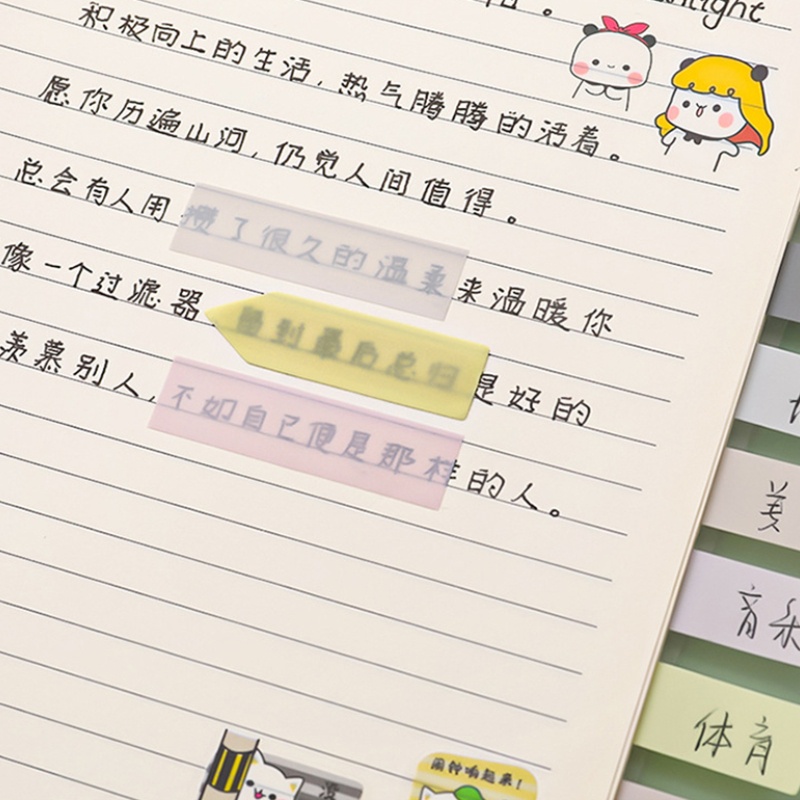 积极向上的生活，热气腾腾的活着。
愿你历遍山河，仍觉人间值得。
总会有人用攒了很久的温柔来温暖你
像一个过滤器 到最后总归是好的
羡慕别人，不如自己便是那样的人。
美
音乐
体育
闹钟响起来！